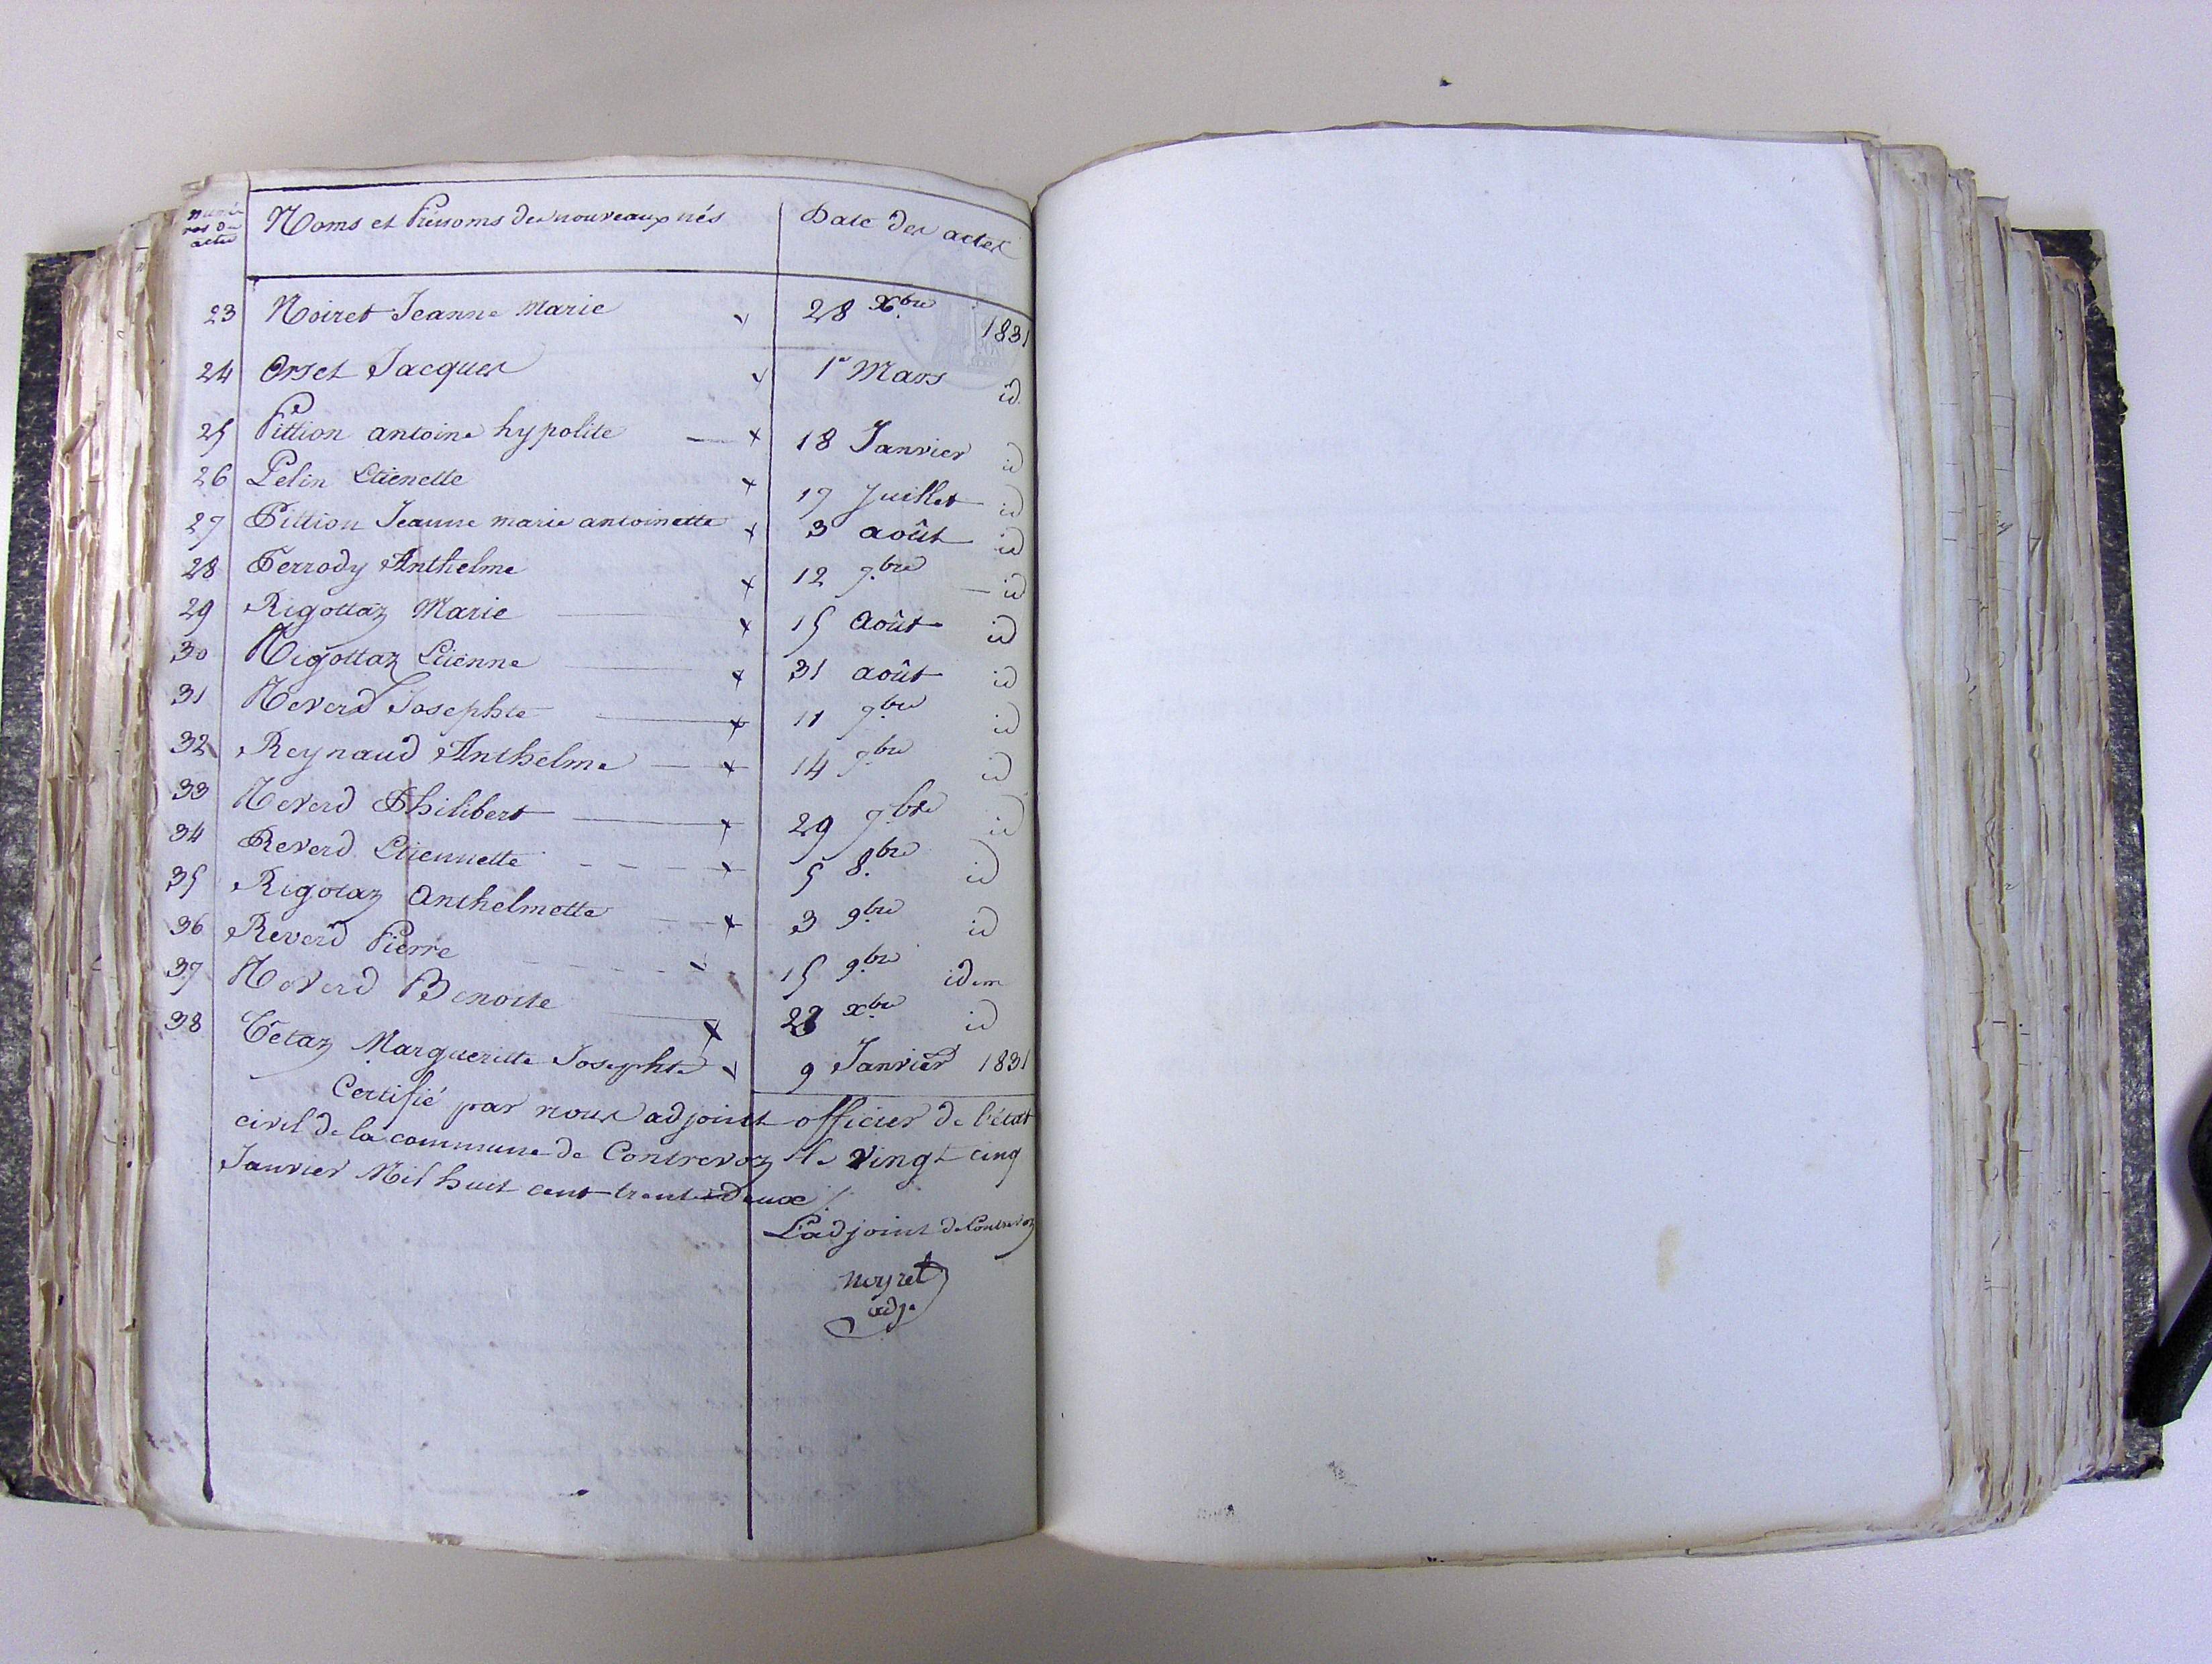 numé
ros d
actes
Noms et Prénoms des nouveaux nés
Date des actes
23 Noiret Jeanne Marie 28 Xbre 1831
24 Orset Jacques 1er Mars id
25 Pittion antoine hypolite 18 Janvier id
26 Pelin Etienette 17 Juillet id
27 Pittion Jeanne marie antoinette 3 août id
28 Perrody Anthelme 12 7bre id
29 Rigottaz Marie 15 Août id
30 Rigottaz Etienne 31 août id
31 Reverd Josephte 11 7bre id
32 Reynaud Anthelme 14 7bre id
33 Reverd Philibert 29 7bre id
34 Reverd Etiennette 5 8bre id
35 Rigotaz Anthelmette 3 9bre id
36 Reverd Pierre 15 9bre idem
37 Reverd Benoite 28 xbre id
38 Tétaz Margueritte Josephte 9 Janvier 1831
Certifié par nous adjoint officier de l'état
civil de la commune de Contrevoz le vingt cinq
Janvier Mil huit cent trente deux /.
L'adjoint de Contrevoz
noyret
adj.